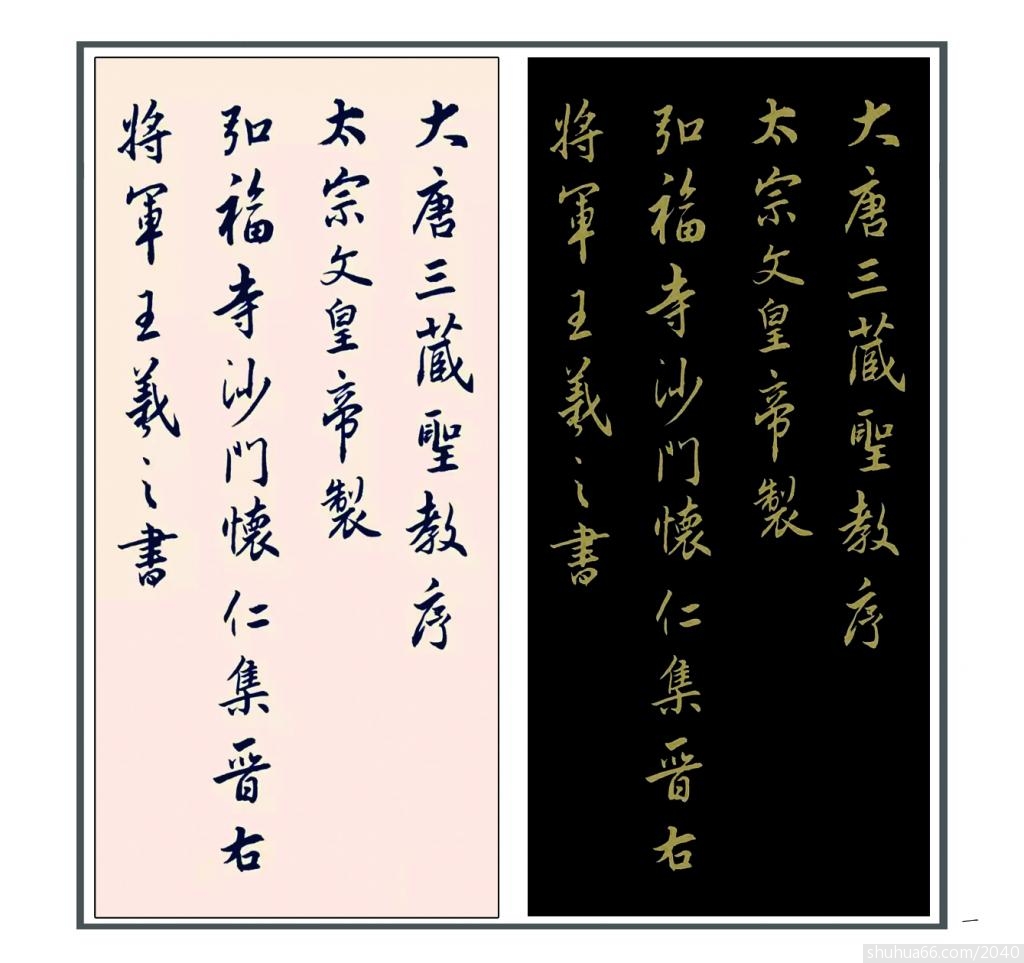 大唐三蔵聖教序
太宗文皇帝製
弘福寺沙門懷仁集晉右
將軍王羲之書
大唐三蔵聖教序
太宗文皇帝製
弘福寺沙門懷仁集晉右
將軍王羲之書
一
shuhua66.com/2040